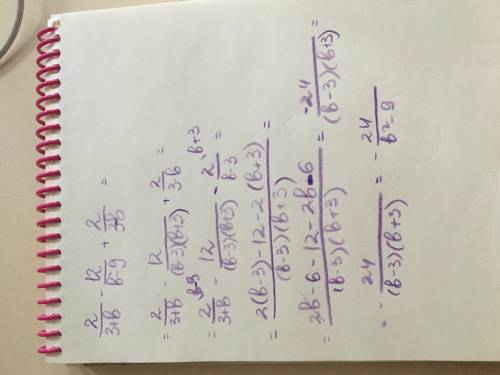 2/(3+b) - 12/(b²-9) + 2/(3-b) =
= 2/(3+b) - 12/((b-3)(b+3)) + 2/(3-b) =
= 2/(3+b) - 12/((b-3)(b+3)) - 2/(b-3) =
= (2(b-3)-12-2(b+3))/((b-3)(b+3)) =
= (2b-6-12-2b-6)/((b-3)(b+3)) = -24/((b-3)(b+3)) =
= - 24/((b-3)(b+3)) = - 24/(b²-9)